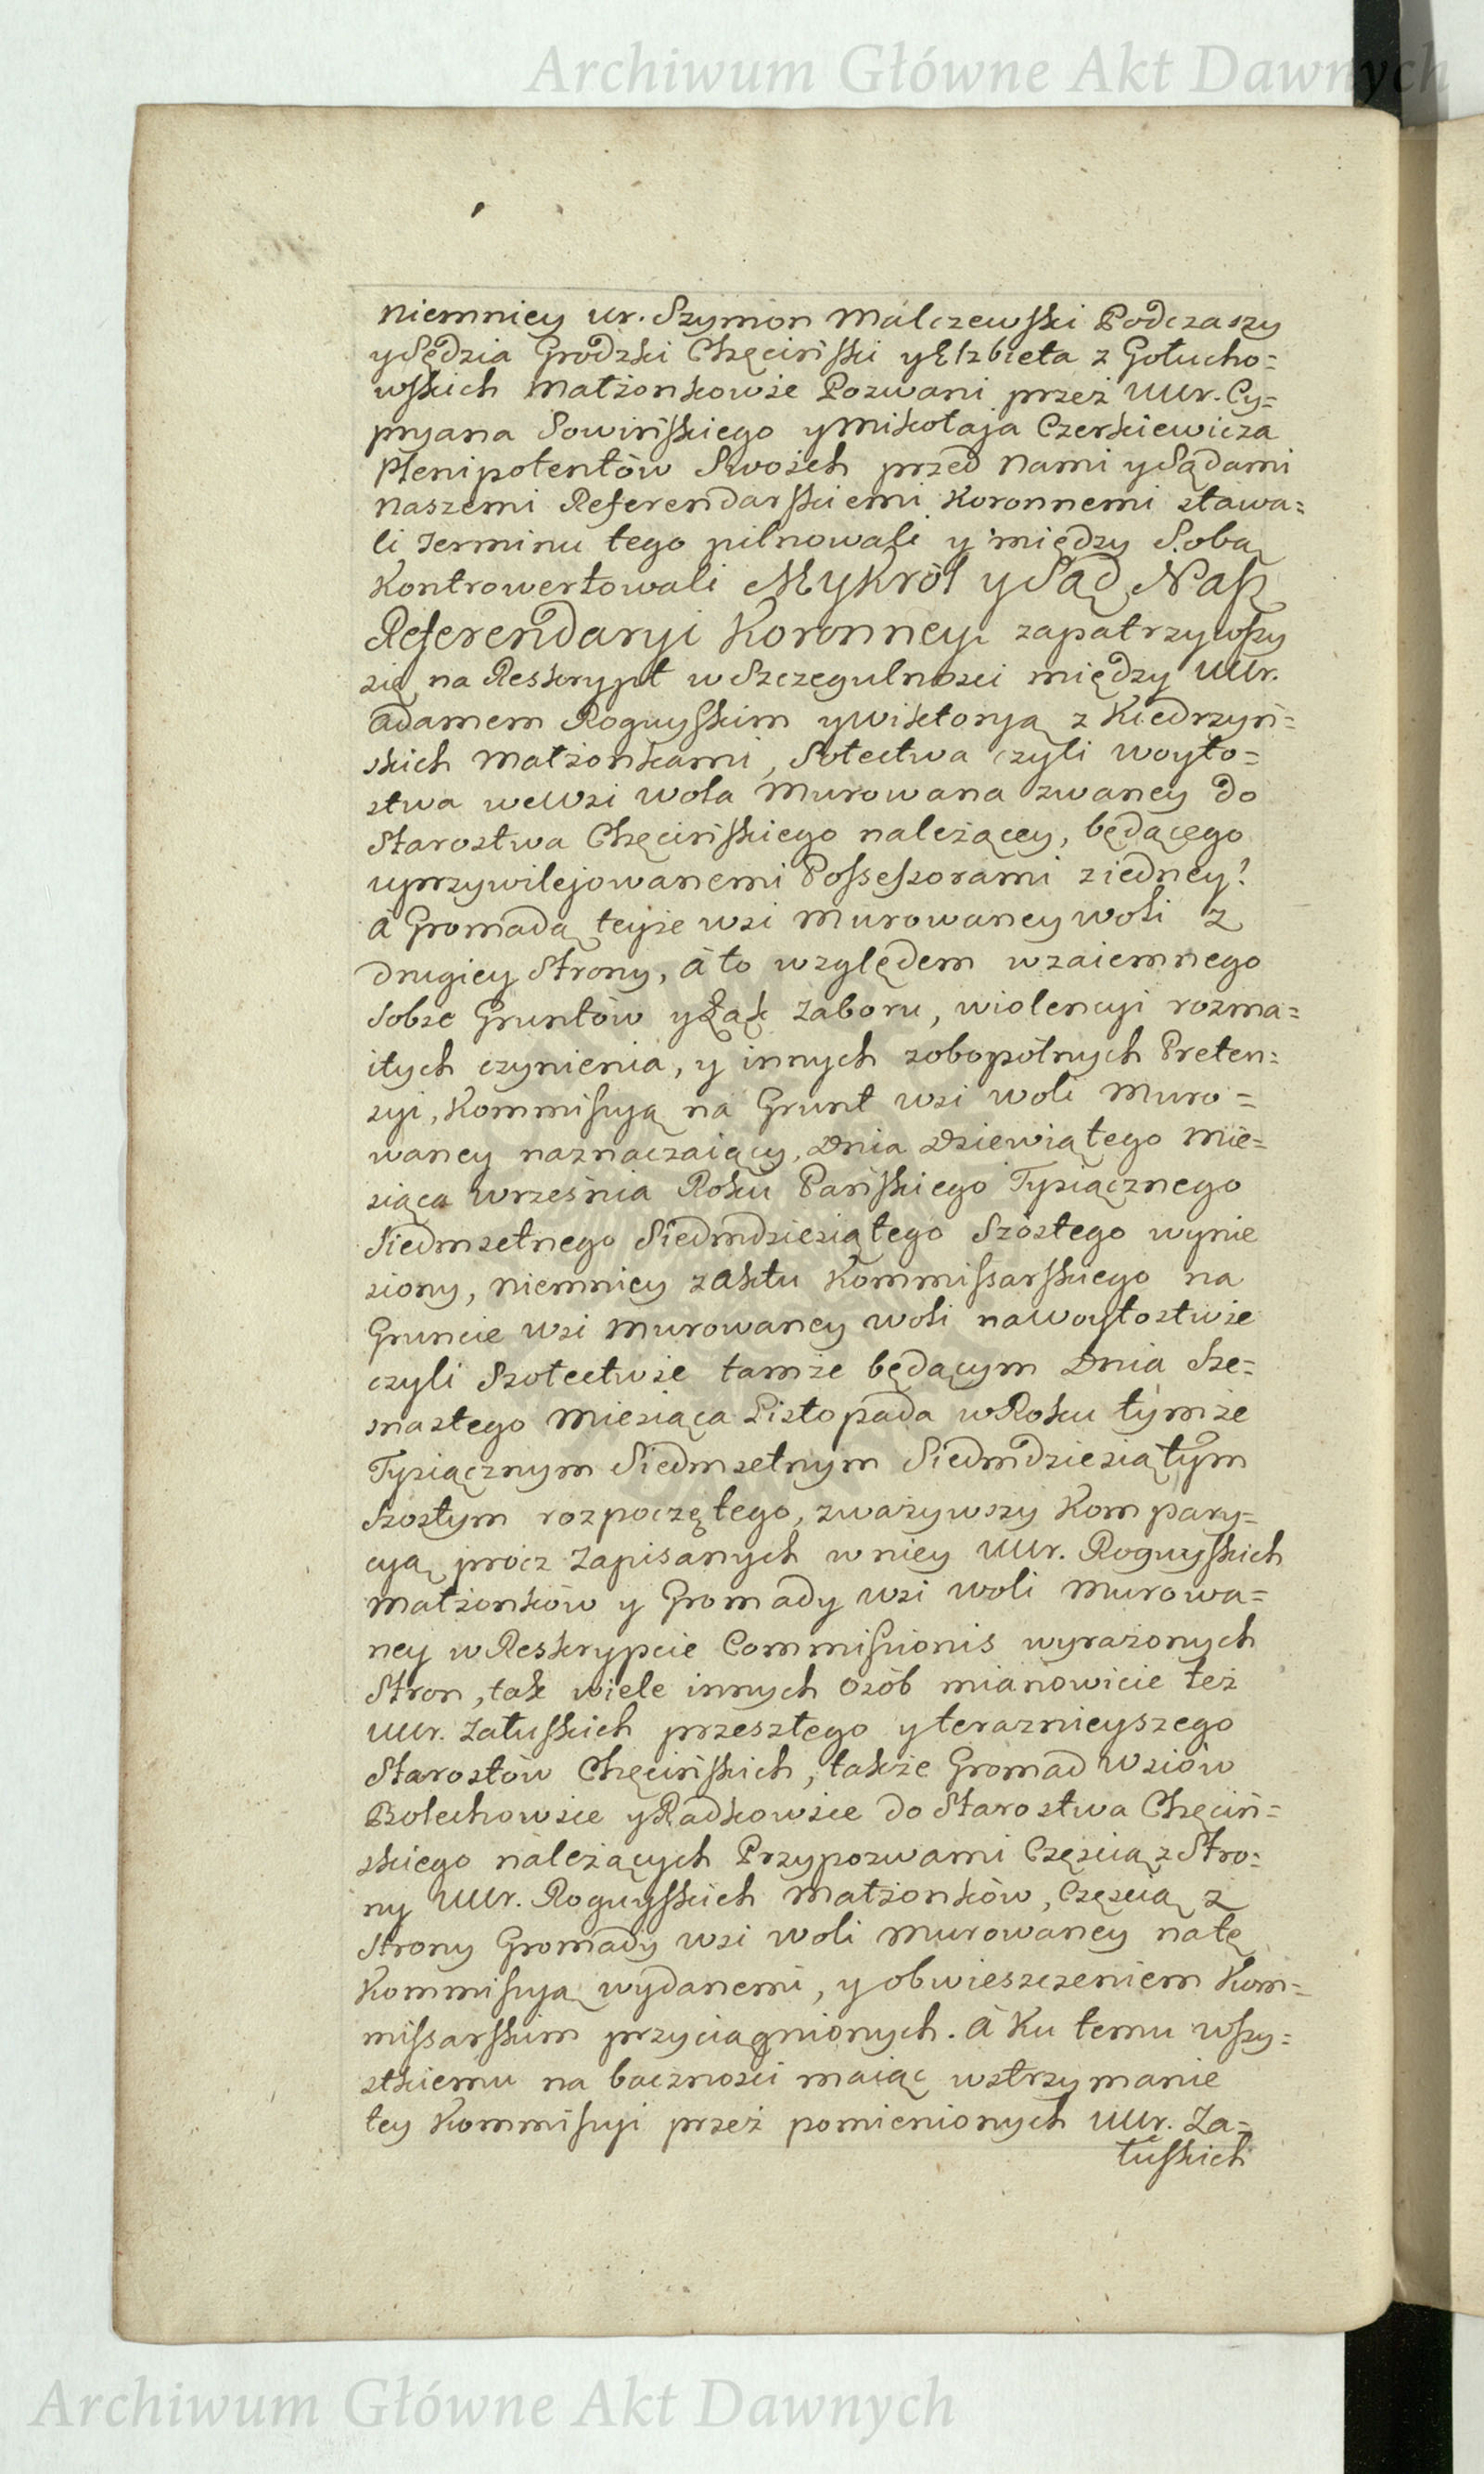 Archiwum Główne Akt Dawnych
niemniey ur. Szymon Malczewski Podczaszy
y Sędzia Grodzki Chęciński y Elzbieta z Gołucho=
wskich Małżonkowie Pozwani przez UUr. Cy=
pryana Sowińskiego y Mikołaja Czerkiewicza
Plenipotentów Swoich przed Nami y Sądami
Naszemi Referendarskiemi Koronnemi stawa=
li Terminu tego pilnowali y między Sobą
Kontrowertowali My Król y Sąd Nasz
Referendaryi Koronney. zapatrzywszy
się na Reskrypt w Szczegulnosci między UUr.
Adamem Roguyskim y Wiktoryą z Kiedrzyń=
skich Małżonkami, Sołectwa czyli woyto=
stwa we Wsi Wola Murowana zwaney do
Starostwa Chęcińskiego należącey, będącego
uprzywilejowanemi Possessorami z iedney?
a Gromadą teyże wsi Murowaney woli z
drugiey Strony, a to względem wzaiemnego
Sobie Gruntów y Łąk Zaboru, wiolencyi rozma=
itych czynienia, y innych zobopólnych Preten=
syi, Kommissyą na Grunt wsi woli Muro=
waney naznaczaiący, Dnia Dziewiątego Mie=
siąca Września Roku Pańskiego Tysiącznego
Siedmsetnego Siedmdziesiątego Szóstego wynie
siony, niemniey z Aktu Kommissarskiego na
Gruncie Wsi Murowaney woli na woytostwie
czyli Szołectwie tamże będącym Dnia Sze=
snastego Miesiąca Listopada w Roku tymże
Tysiącznym Siedmsetnym Siedmdziesiątym
Szostym rozpoczętego, zważywszy Kompary=
cyą prócz Zapisanych w niey UUr. Roguyskich
Małżonków y Gromady wsi woli Murowa=
ney w Reskrypcie Commissionis wyrażonych
Stron, tak wiele innych osób mianowicie też
UUr. Załuskich przeszłego y teraznieyszego
Starostów Chęcińskich, także Gromad Wsiów
Bolechowice y Radkowice do Starostwa Chęciń=
skiego należących Przypozwami Częścią z Stro=
ny UUr. Roguyskich Małżonków, Częścią z
Strony Gromady wsi woli Murowaney na tę
Kommissyą wydanemi, y obwieszczeniem Kom=
missarskim przyciągnionych. a Ku temu wszy=
stkiemu na baczności maiąc wstrzymanie
tey Kommissyi przez pomienionych UUr. Za=
łuskich
Archiwum Główne Akt Dawnych